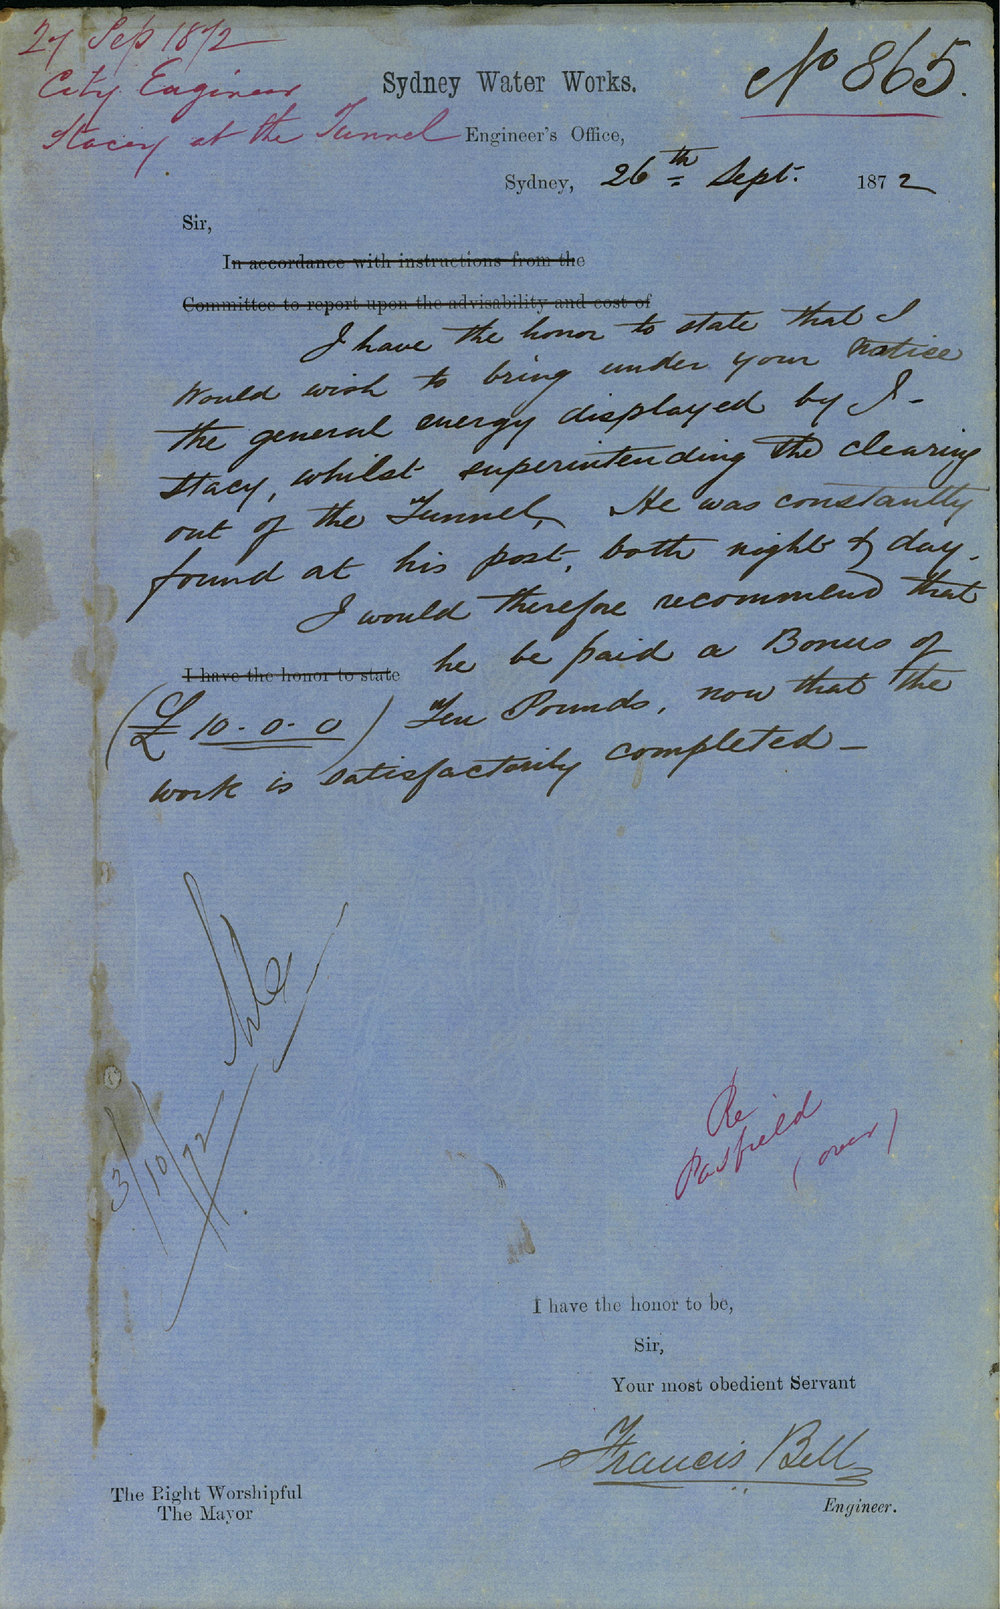 27 Sep 1872
City Engineer
Stacey at the Tunnel
No 865.
Sydney Water Works.
Engineer's Office,
Sydney, 26th Sept. 1872
Sir,
In accordance with instructions from the
Committee to report upon the advisability and cost of
I have the honor to state that I
would wish to bring under your notice
the general energy displayed by J-
Stacy, whilst superintending the clearing
out of the Tunnel, He was constantly
found at his post, both night & day.
I would therefore recommend that
I have the honor to state he be paid a Bonus of
(£10-0-0) Ten Pounds, now that the
work is satisfactorily completed-
3/10/72
Re
Padfield
(over)
I have the honor to be,
Sir,
Your most obedient Servant
Francis Bell
Engineer.
The Right Worshipful
The Mayor